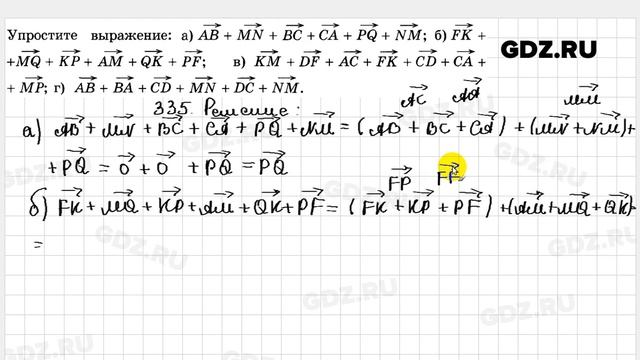 Упростите выражение: а) AB + MN + BC + CA + PQ + NM; б) FK +
+MQ + KP + AM + QK + PF; в) KM + DF + AC + FK + CD + CA +
+ MP; г) AB + BA + CD + MN + DC + NM.
GDZ.RU
335. Решение:
AC AA MM
а) AB + MN + BC + CA + PQ + NM = (AB + BC + CA) + (MN + NM) +
+ PQ = 0 + 0 + PQ = PQ
FP FF
б) FK + MQ + KP + AM + QK + PF = (FK + KP + PF) + (AM + MQ + QK) +
=